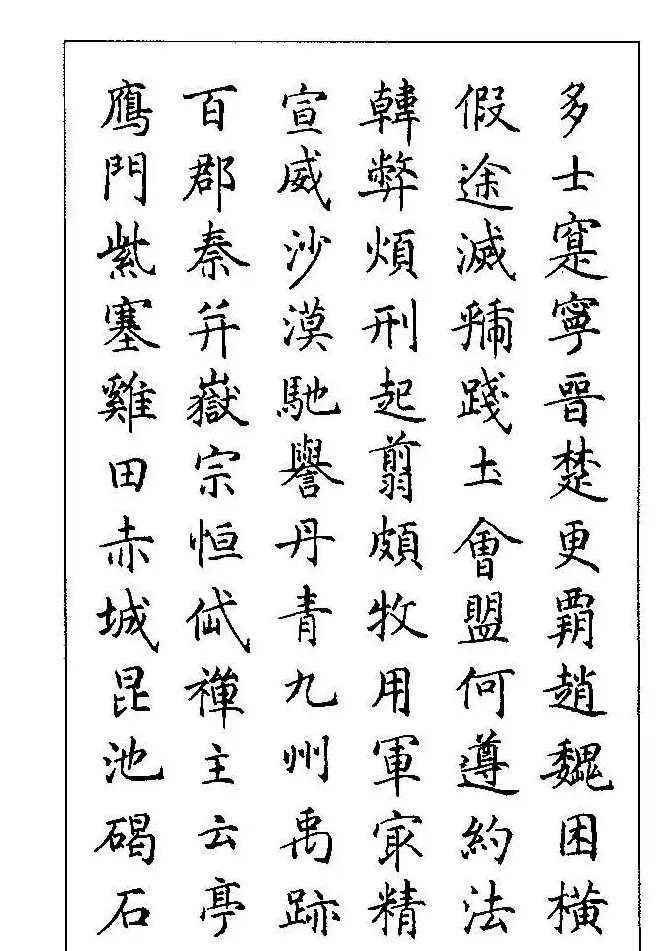 多士寔寧晉楚更覇趙魏困橫
假途滅虢踐土會盟何遵約法
韓弊煩刑起翦頗牧用軍宼精
宣威沙漠馳譽丹青九州禹跡
百郡秦并嶽宗恒岱禪主云亭
鴈門紫塞雞田赤城昆池碣石